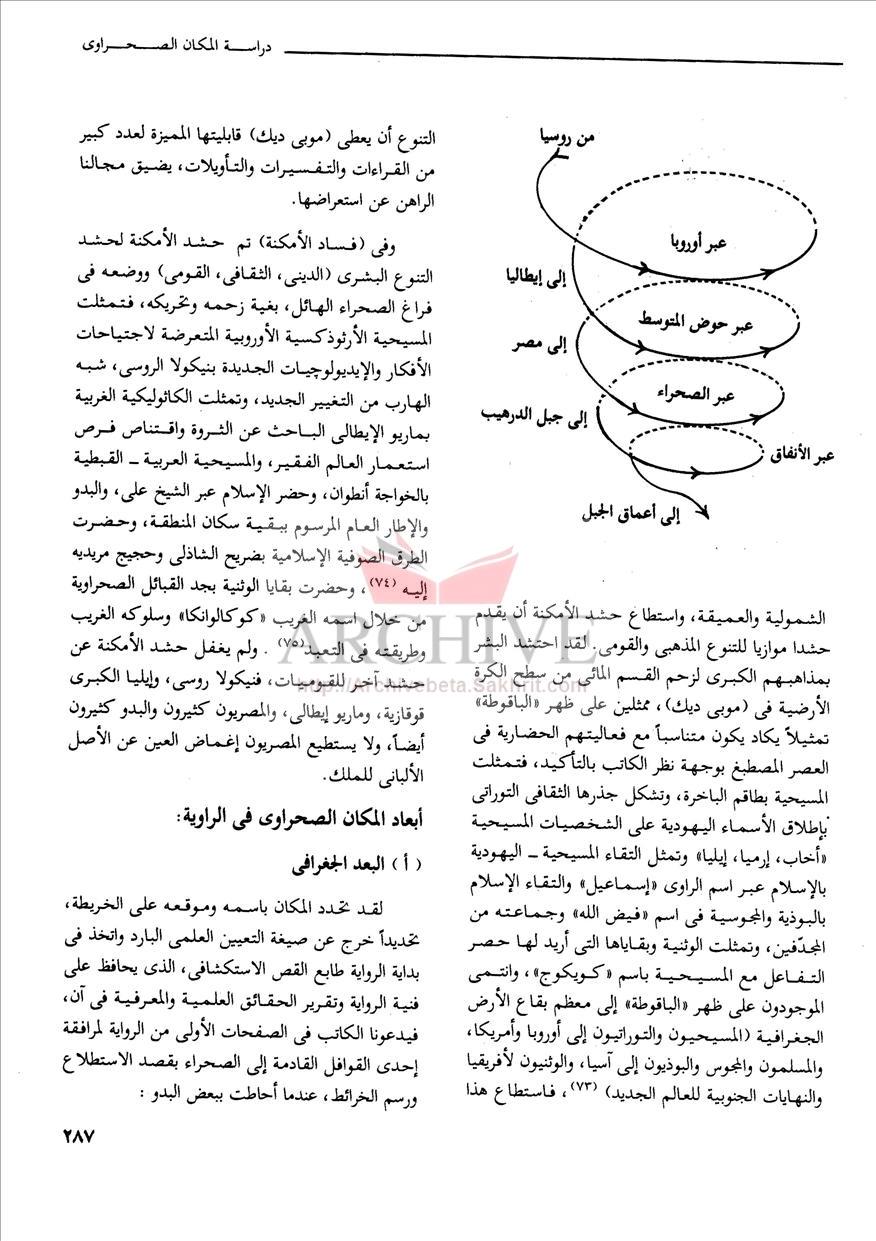 دراسـة المكان الصـحـراوى
من روسيا
عبر أوروبا
إلى إيطاليا
عبر حوض المتوسط
إلى مصر
عبر الصحراء
إلى جبل الدرهيب
عبر الأنفاق
إلى أعماق الجبل
الشمولية والعميقة، واستطاع حشد الأمكنة أن يقدم
حشدا موازيا للتنوع المذهبى والقومى. لقد احتشد البشر
بمذاهبهم الكبرى لزحم القسم المائى من سطح الكرة
الأرضية فى (موبى ديك)، ممثلين على ظهر «الباقوطة»
تمثيلاً يكاد يكون متناسباً مع فعاليتهم الحضارية فى
العصر المصطبغ بوجهة نظر الكاتب بالتأكيد، فتمثلت
المسيحية بطاقم الباخرة، وتشكل جذرها الثقافى التوراتى
بإطلاق الأسماء اليهودية على الشخصيات المسيحية
«أخاب، إرميا، إيليا» وتمثل التقاء المسيحية ــ اليهودية
بالإسلام عبر اسم الراوى «إسماعيل» والتقاء الإسلام
بالبوذية والمجوسية فى اسم «فيض الله» وجماعته من
المجدّفين، وتمثلت الوثنية وبقاياها التى أريد لها حصر
التفاعل مع المسيحية باسم «كويكوج»، وانتمى
الموجودون على ظهر «الباقوطة» إلى معظم بقاع الأرض
الجغرافية (المسيحيون والتوراتيون إلى أوروبا وأمريكا،
والمسلمون والمجوس والبوذيون إلى آسيا، والوثنيون لأفريقيا
والنهايات الجنوبية للعالم الجديد) (٧٣)، فاستطاع هذا
التنوع أن يعطى (موبى ديك) قابليتها المميزة لعدد كبير
من القراءات والتفسيرات والتأويلات، يضيق مجالنا
الراهن عن استعراضها.
وفى (فساد الأمكنة) تم حشد الأمكنة لحشد
التنوع البشرى (الدينى، الثقافى، القومى) ووضعه فى
فراغ الصحراء الهائل، بغية زحمه وتحريكه، فتمثلت
المسيحية الأرثوذكسية الأوروبية المتعرضة لاجتياحات
الأفكار والإيديولوچيات الجديدة بنيكولا الروسى، شبه
الهارب من التغيير الجديد، وتمثلت الكاثوليكية الغربية
بماريو الإيطالى الباحث عن الثروة واقتناص فرص
استعمار العالم الفقير، والمسيحية العربية ــ القبطية
بالخواجة أنطوان، وحضر الإسلام عبر الشيخ على، والبدو
والإطار العام المرسوم ببقية سكان المنطقة، وحضرت
الطرق الصوفية الإسلامية بضريح الشاذلى وحجيج مريديه
إليه (٧٤)، وحضرت بقايا الوثنية بجد القبائل الصحراوية
من خلال اسمه الغريب «كوكالوانكا» وسلوكه الغريب
وطريقته فى التعبد(٧٥) . ولم يغفل حشد الأمكنة عن
حشد آخر للقوميات، فنيكولا روسى، وإيليا الكبرى
قوقازية، وماريو إيطالى، والمصريون كثيرون والبدو كثيرون
أيضاً، ولا يستطيع المصريون إغماض العين عن الأصل
الألبانى للملك.
أبعاد المكان الصحراوى فى الراوية:
( أ ) البعد الجغرافى
لقد تحدد المكان باسمه وموقعه على الخريطة،
تحديداً خرج عن صيغة التعيين العلمى البارد واتخذ فى
بداية الرواية طابع القص الاستكشافى، الذى يحافظ على
فنية الرواية وتقرير الحقائق العلمية والمعرفية فى آن،
فيدعونا الكاتب فى الصفحات الأولى من الرواية لمرافقة
إحدى القوافل القادمة إلى الصحراء بقصد الاستطلاع
ورسم الخرائط، عندما أحاطت ببعض البدو :
٢٨٧
ARCHIVE
http://Archivebeta.Sakhrit.com